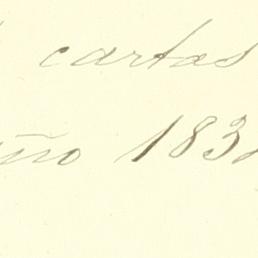 cartas
año 183